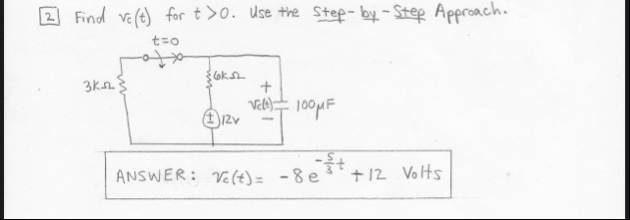 2 Find vc(t) for t>0. Use the Step-by-Step Approach.
t=0
3KΩ
6KΩ
+
Vc(t)
100μF
-
+
-
12V
ANSWER: Vc(t) = -8e^(-5/3 t) + 12 Volts